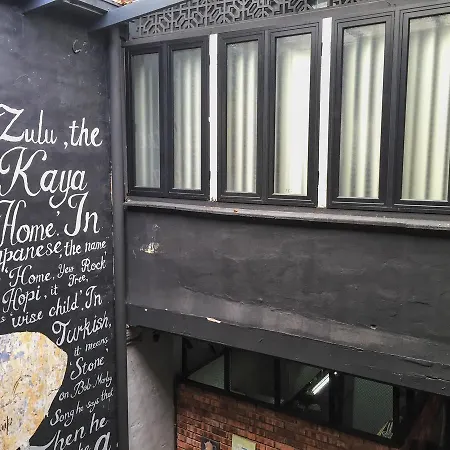 Zulu, the
Kaya
Home'. In
apanese, the name
'Home, Yew Rock
Hopi, it Tree,
s 'wise child'. In
Turkish,
it means
'Stone'
on Bob Marley
Song he says that
when he
a